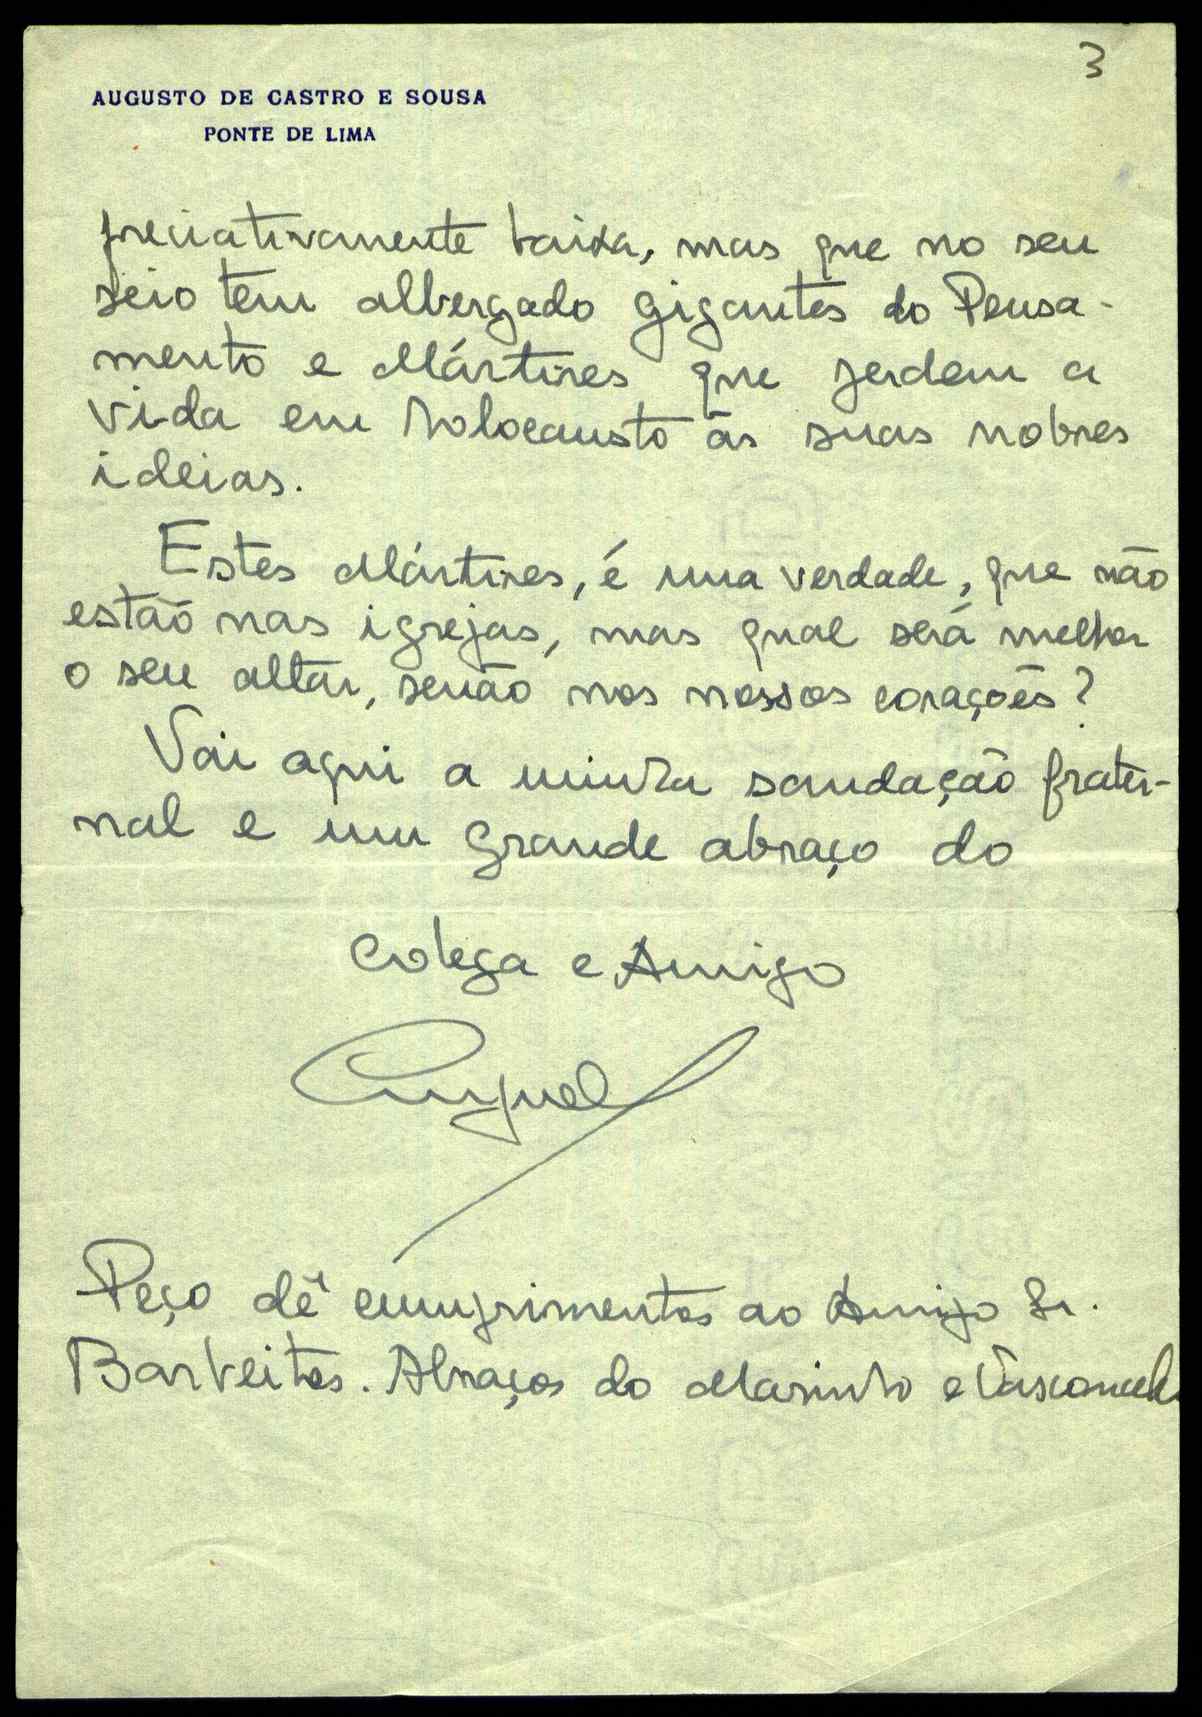 3
AUGUSTO DE CASTRO E SOUSA
PONTE DE LIMA
preciativamente baixa, mas que no seu
seio tem albergado gigantes do Pensa-
mento e Mártires que perdem a
vida em holocausto às suas nobres
ideias.
Estes Mártires, é uma verdade, que não
estão nas igrejas, mas qual será melhor
o seu altar, senão nos nossos corações?
Vai aqui a minha saudação frater-
nal e um grande abraço do
Colega e Amigo
Peço dê cumprimentos ao Amigo Sr.
Barbeitos. Abraços do Marinho e Vasconcelos